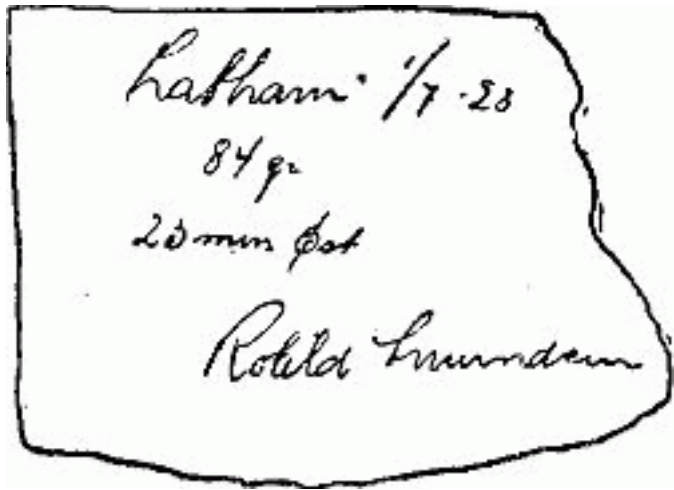 Latham 1/7
84 gr
min Øst
Roald Amundsen